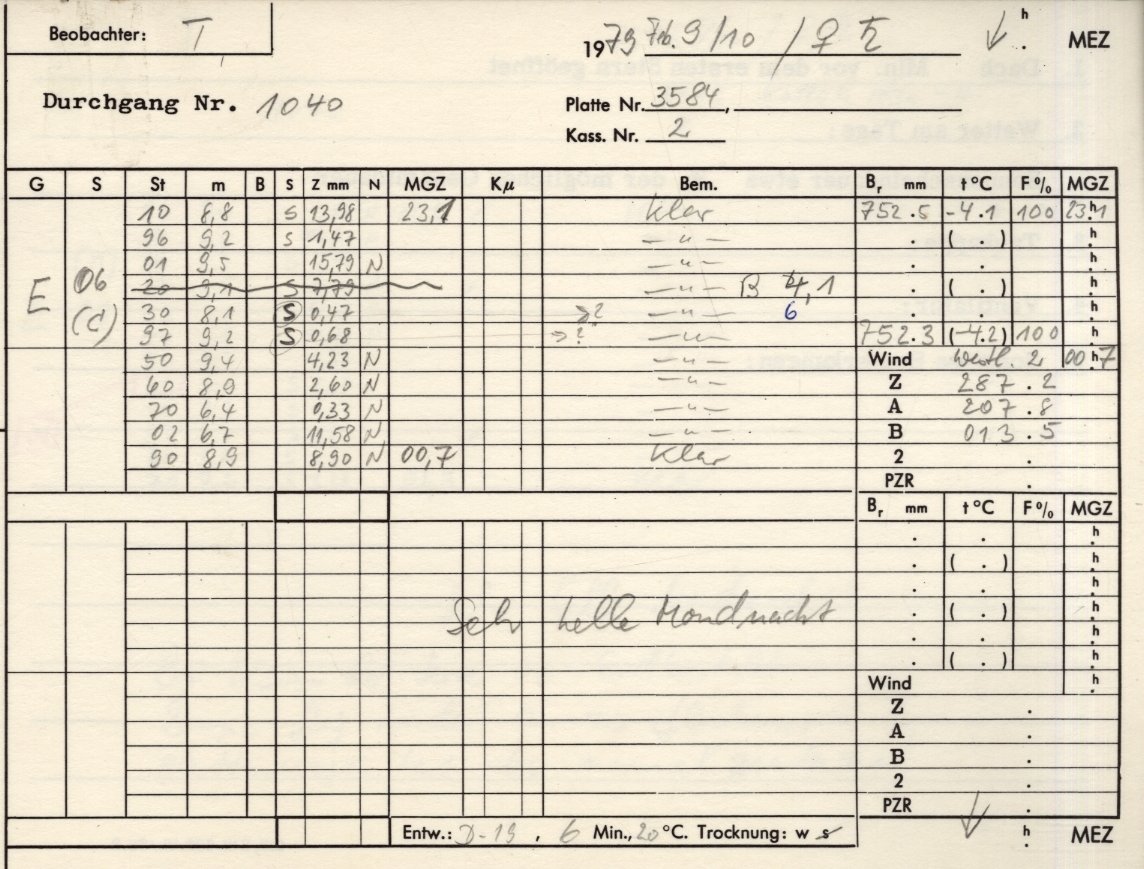 Beobachter: T
1979 Feb. 9/10 / ♀ ♄ h MEZ
Durchgang Nr. 1040
Platte Nr. 3584,
Kass. Nr. 2
G S St m B S Z mm N MGZ Kμ Bem. Br mm t °C F % MGZ
10 8,8 S 13,98 23,1 klar 752.5 -4.1 100 23h1
96 9,2 S 1,47 — " — . ( . ) h
01 9,5 15,79 N — " — . . h
E 06 20 9,1 S 7,79 — " — B 4,1 . ( . ) h
(d) 30 8,1 S 0,47 >? — " — 6 . . h
97 9,2 S 0,68 >? — " — 752.3 (-4.2) 100 h
50 9,4 4,23 N — " — Wind Westl. 2 00h7
60 8,9 2,60 N — " — Z 287.2
70 6,4 0,33 N — " — A 207.8
02 6,7 11,58 N — " — B 013.5
90 8,9 8,90 N 00,7 klar 2 .
PZR .
Br mm t °C F % MGZ
. . h
. ( . ) h
. . h
Sehr helle Mondnacht . ( . ) h
. . h
. ( . ) h
Wind h
Z .
A .
B .
2 .
PZR .
Entw.: D-19, 6 Min., 20 °C. Trocknung: w s h MEZ